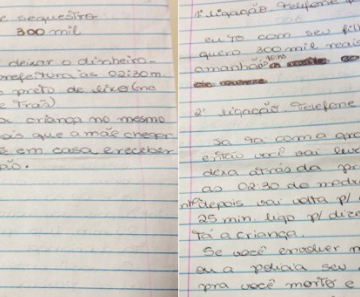 e sequestro
300 mil
deixar o dinheiro
prefeitura às 02:30m
preto de lixo (no
e Trai)
a criança no mesmo
ois que a mãe chegar
e em casa e receber
ão.
1ª Ligação Telefone
eu to com seu fil
quero 300 mil reais
amanhã
2ª Ligação Telefone
Ja ta com a
então você vai lev
dexa atras da pr
as 02:30 da madr
depois vai volta p/ c
25 min. ligo p/ dize
tá a criança.
Se você envolver m
ou a policia seu
pra você morto e